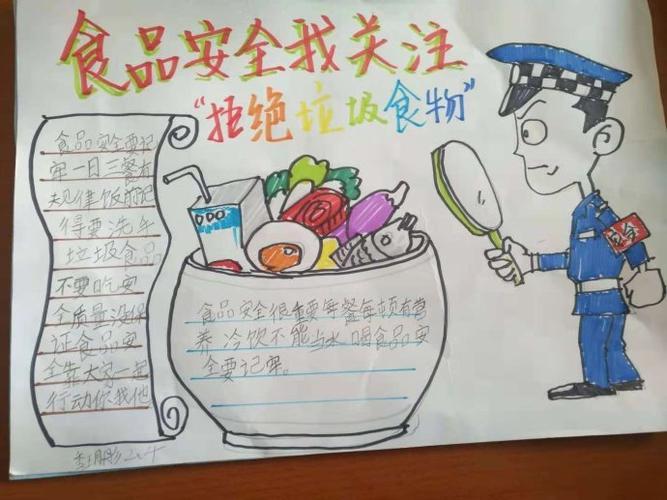 食品安全我关注
“拒绝垃圾食物”
食品安全要记
牢一日三餐有
规律饭前记
得要洗手
垃圾食品
不要吃安
全质量没保
证食品安
全靠大家一起
行动你我他
食品安全很重要每餐每顿有营
养冷饮不能当水喝食品安
全要记牢。